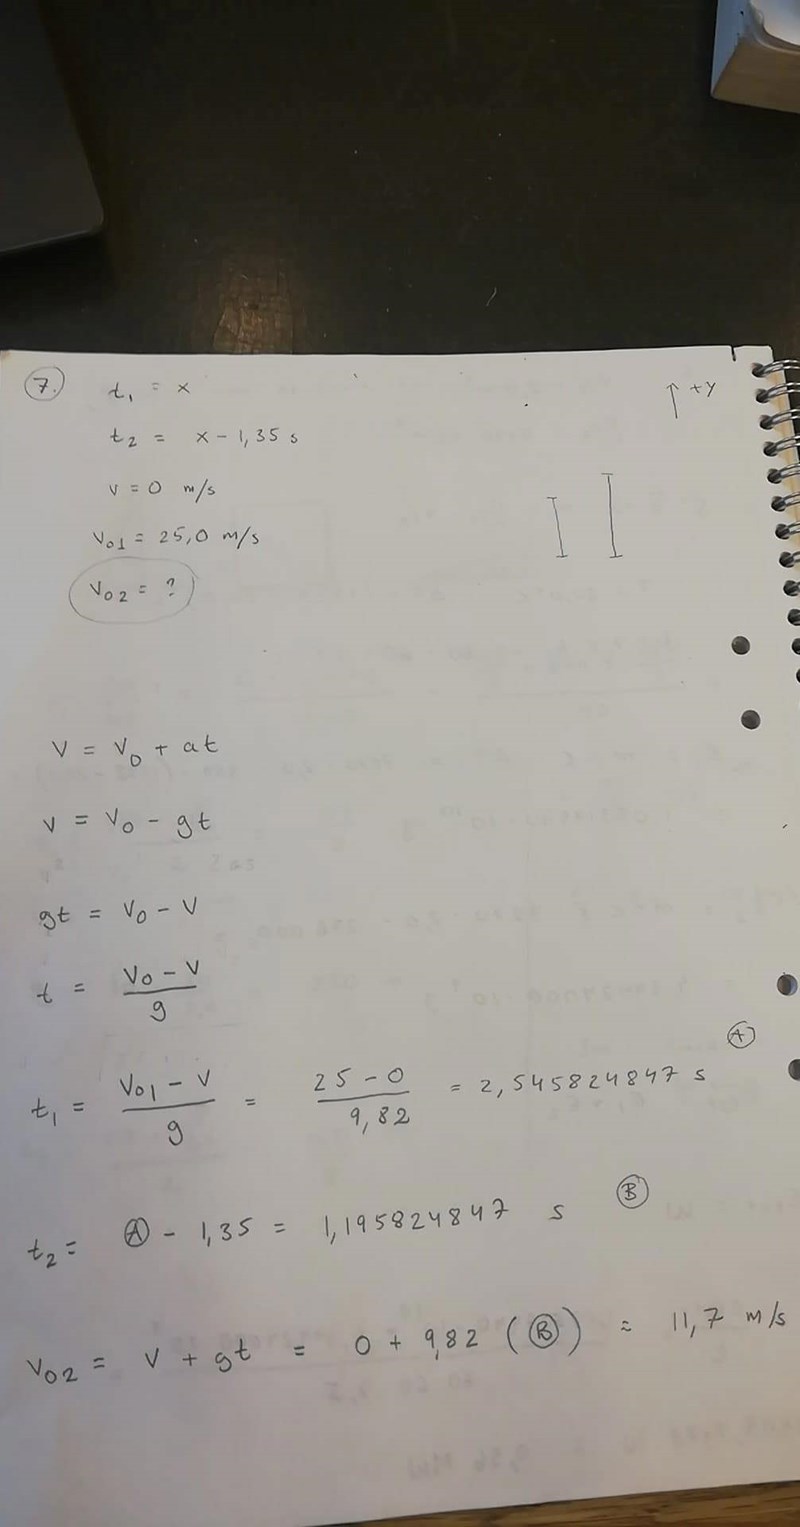 7.
t₁ = x
+y
t₂ = x - 1,35 s
v = 0 m/s
v₀₁ = 25,0 m/s
v₀₂ = ?
v = v₀ + at
v = v₀ - gt
gt = v₀ - v
t = (v₀ - v) / g
t₁ = (v₀₁ - v) / g = (25 - 0) / 9,82 = 2,545824847 s Ⓐ
t₂ = Ⓐ - 1,35 = 1,195824847 s Ⓑ
v₀₂ = v + gt = 0 + 9,82 (Ⓑ) ≈ 11,7 m/s